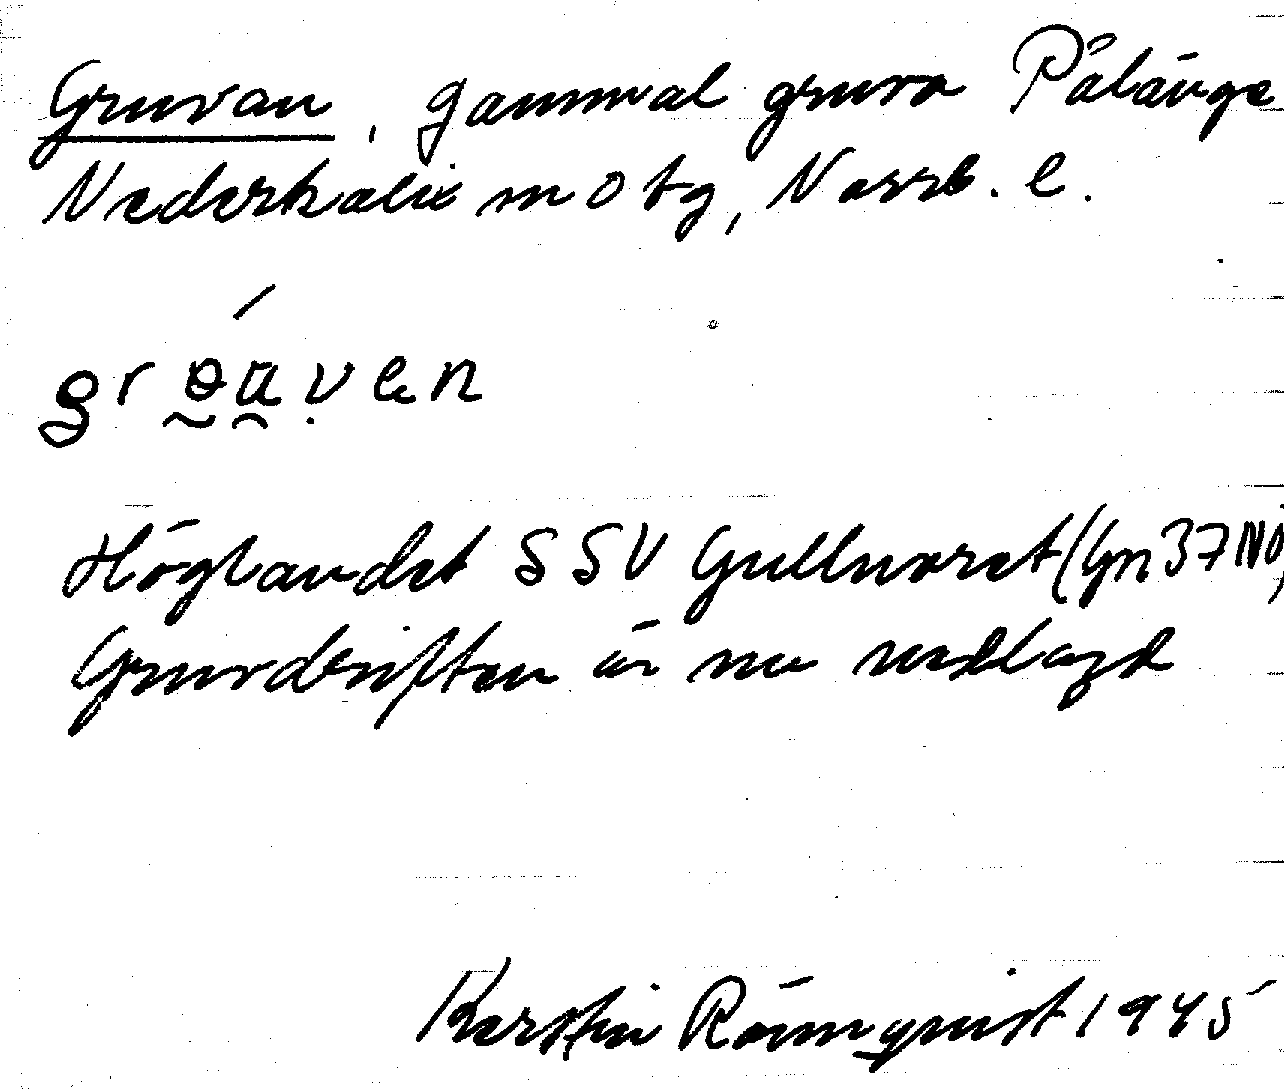 Gruvan, gammal gruva Pålänge
Nederkalix m o tg, Norrb. l.
Höglandet SSV Gullnäset (Gn 37 NÖ)
Gruvdriften är nu nedlagd
Kerstin Rönnqvist 1945